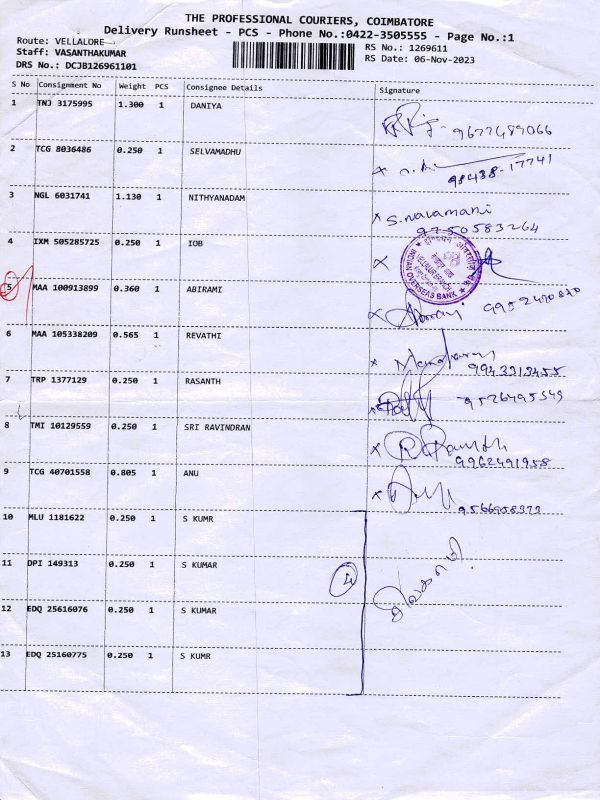 THE PROFESSIONAL COURIERS, COIMBATORE
Delivery Runsheet - PCS - Phone No.:0422-3505555 - Page No.:1
Route: VELLALORE
Staff: VASANTHAKUMAR
DRS No.: DCJB126961101
RS No.: 1269611
RS Date: 06-Nov-2023
S No Consignment No Weight PCS Consignee Details Signature
1 TNJ 3175995 1.300 1 DANIYA
2 TCG 8036486 0.250 1 SELVAMADHU 98438-17741
3 NGL 6031741 1.130 1 NITHYANADAM S.Navamani
9750583264
4 IXM 505285725 0.250 1 IOB
INDIAN OVERSEAS BANK
5 MAA 100913899 0.360 1 ABIRAMI
6 MAA 105338209 0.565 1 REVATHI
7 TRP 1377129 0.250 1 RASANTH
8 TMI 10129559 0.250 1 SRI RAVINDRAN
9962491958
9 TCG 40701558 0.805 1 ANU
10 MLU 1181622 0.250 1 S KUMR
11 DPI 149313 0.250 1 S KUMAR
4
12 EDQ 25616076 0.250 1 S KUMAR
13 EDQ 25160775 0.250 1 S KUMR